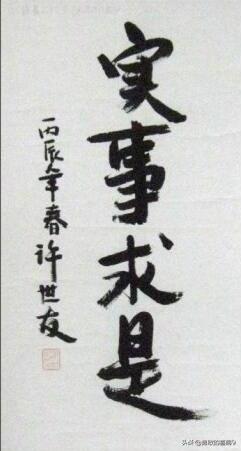 实事求是
丙辰年春许世友